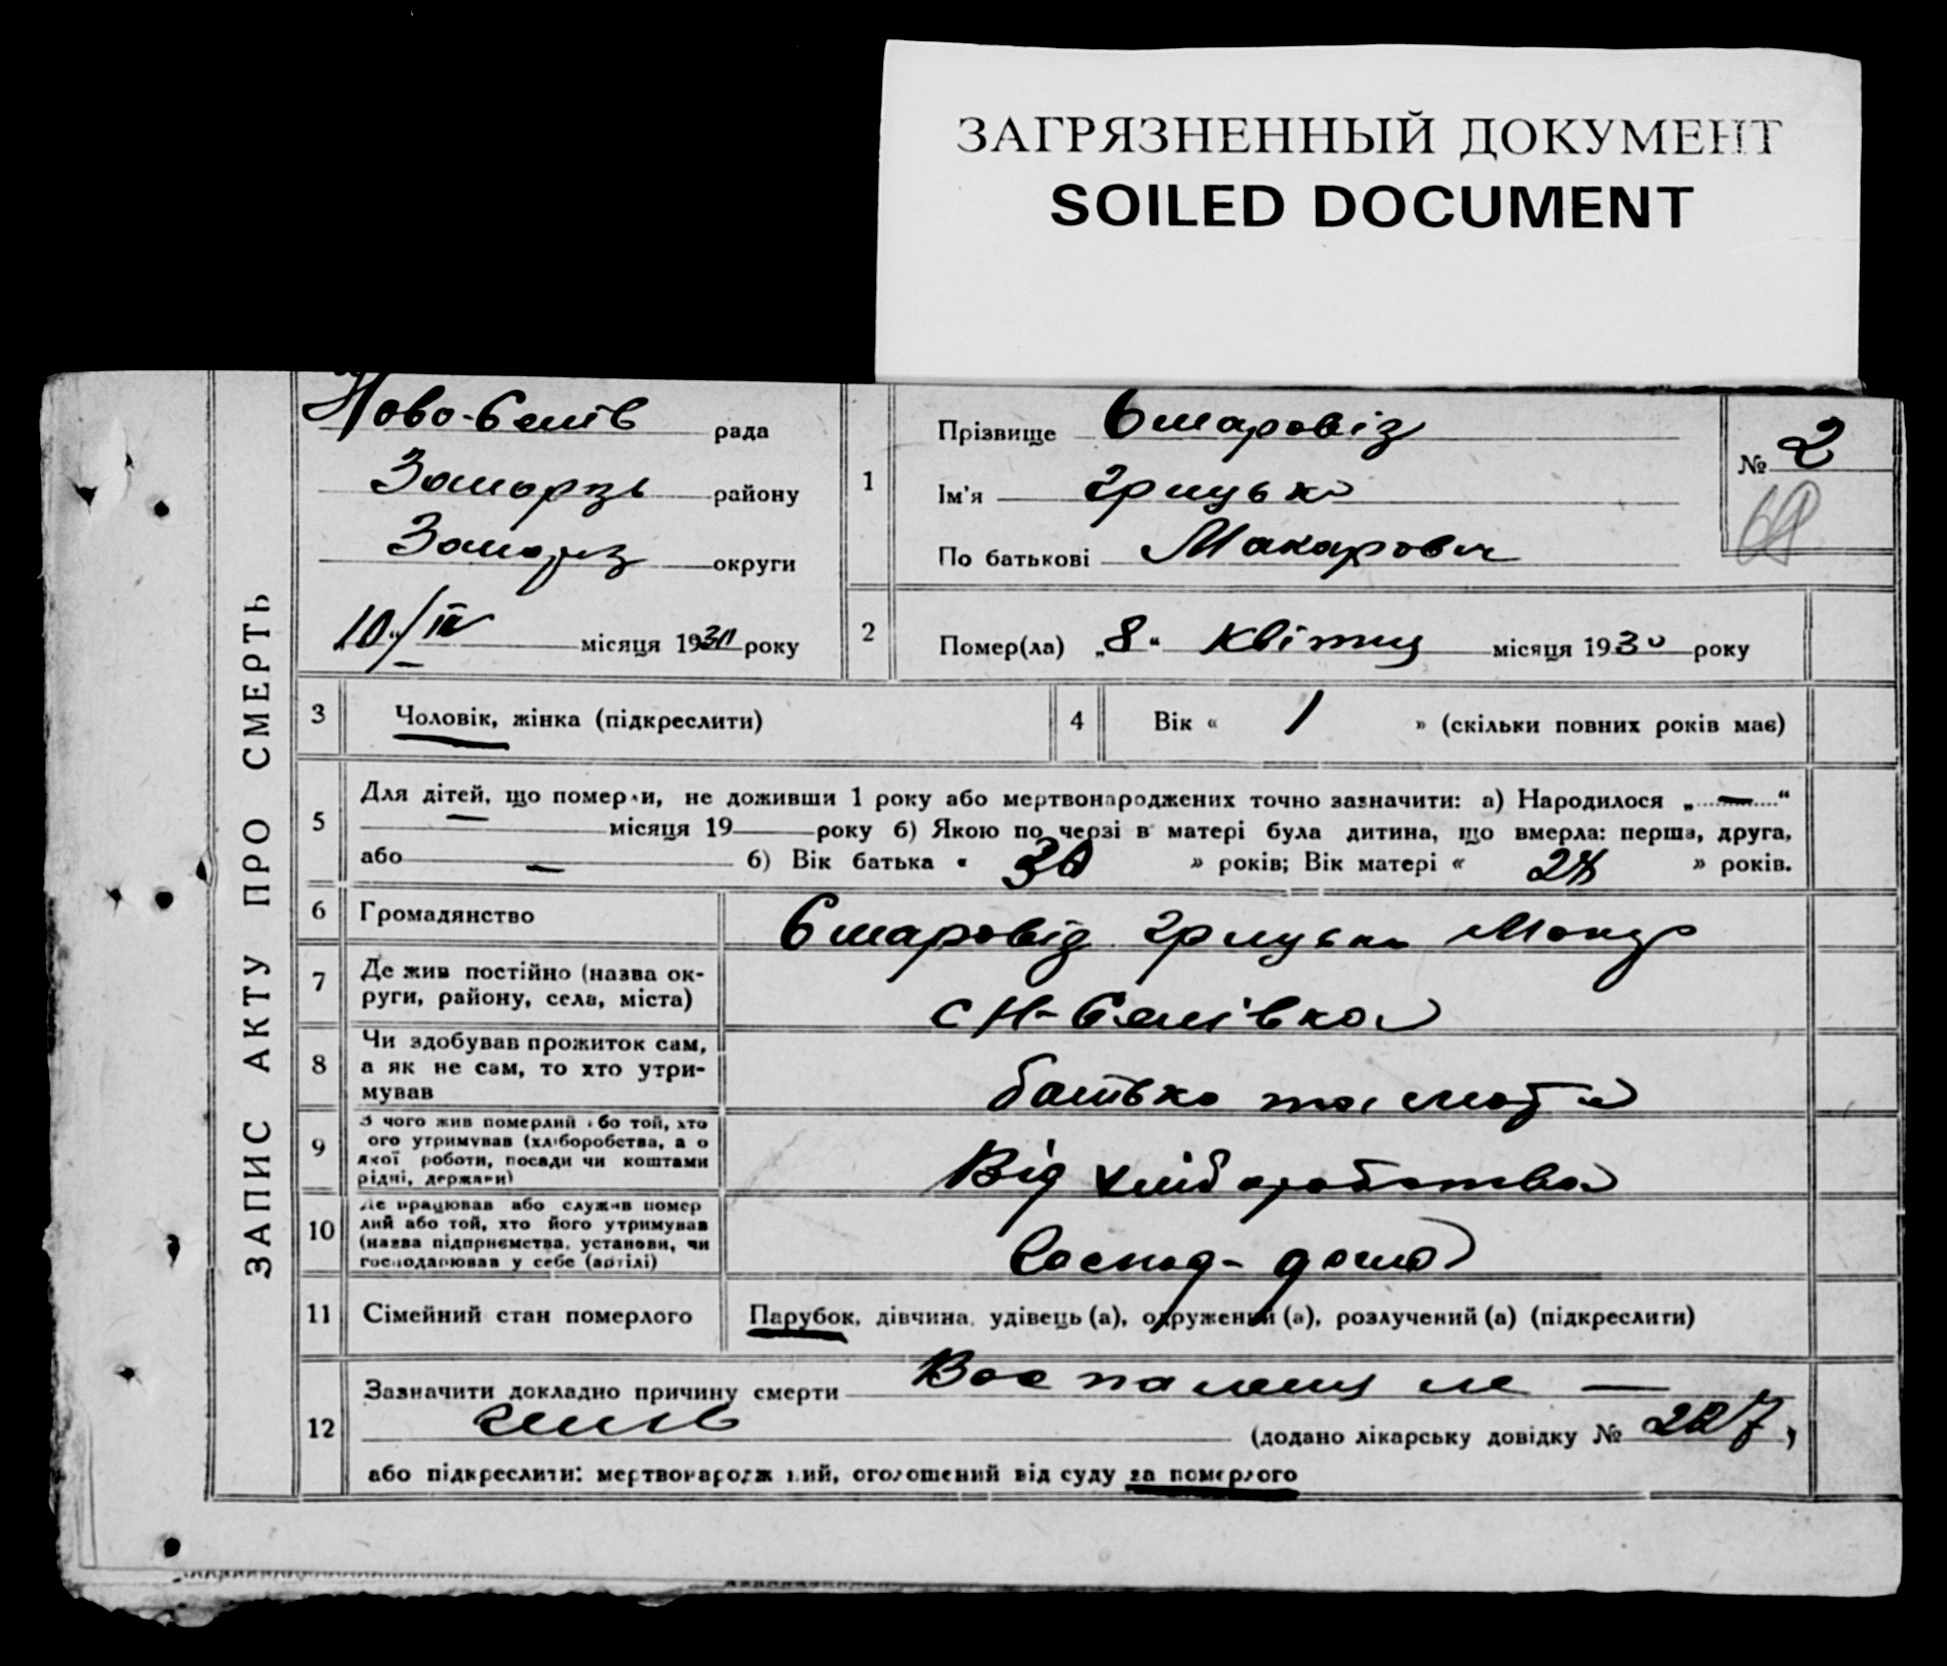 ЗАГРЯЗНЕННЫЙ ДОКУМЕНТ
SOILED DOCUMENT
ЗАПИС АКТУ ПРО СМЕРТЬ
рада
району
округи
10/IV місяця 1930 року
1
Прізвище
Ім'я Грицько
По батькові Макарович
№ 2
2
Помер(ла) „8“ Квітня місяця 1930 року
3 Чоловік, жінка (підкреслити)
4 Вік « 1 » (скільки повних років має)
5
Для дітей, що померли, не доживши 1 року або мертвонароджених точно зазначити: а) Народилося „ — “
— місяця 19 року б) Якою по черзі в матері була дитина, що вмерла: перша, друга,
або — б) Вік батька « 30 » років; Вік матері « » років.
6 Громадянство Грицько
7
Де жив постійно (назва ок-
руги, району, села, міста)
8
Чи здобував прожиток сам,
а як не сам, то хто утри-
мував
батько та мати
9
З чого жив померлий або той, хто
його утримував (хліборобства, з
якої роботи, посади чи коштами
рідні, держави)
Від хліборобства
10
Де працював або служив помер
лий або той, хто його утримував
(назва підприємства, установи, чи
господарював у себе (артілі)
Господ- дома
11 Сімейний стан померлого
Парубок, дівчина, удівець (а), одружений (а), розлучений (а) (підкреслити)
12
Зазначити докладно причину смерти Воспаление —
(додано лікарську довідку № 227,
або підкреслити: мертвонароджений, оголошений від суду за померлого